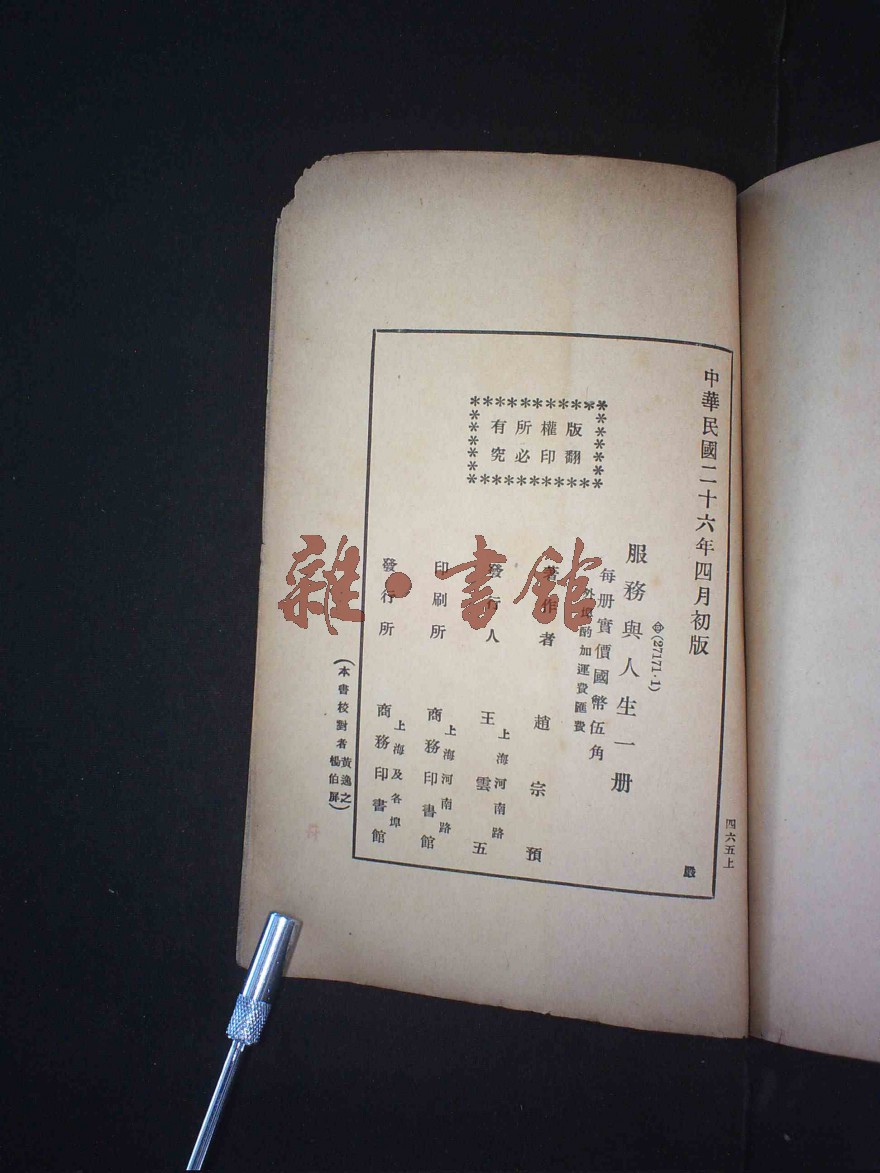 中華民國二十六年四月初版
四六五上
嚴
㊥(27171·1)
服務與人生一册
每册實價國幣伍角
外埠酌加運費匯費
版權所有
翻印必究
著作者 趙宗預
發行人 王雲五
上海河南路
印刷所 商務印書館
上海河南路
發行所 商務印書館
上海及各埠
(本書校對者 黃逸之 楊伯屏)
雜·書館